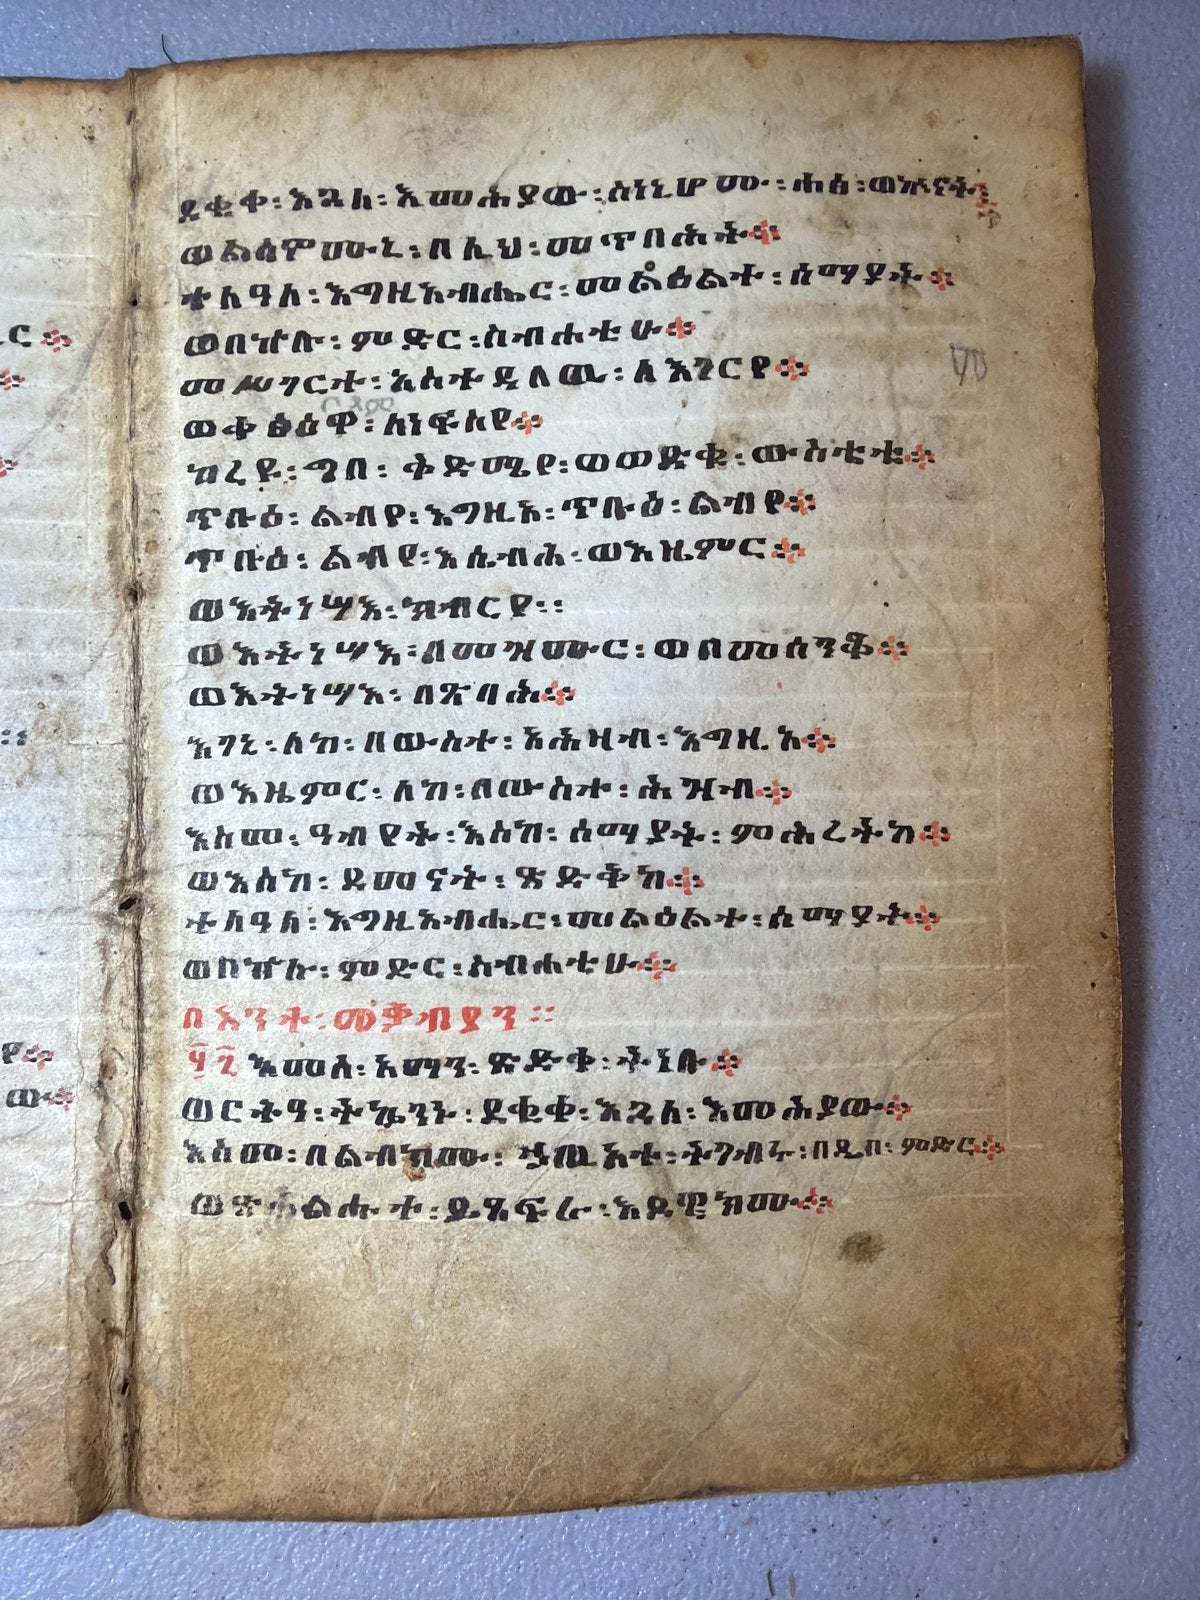 ደቂቀ፡ እጓለ፡ እመሕያው፡ ስነኒሆሙ፡ ሐፅ፡ ወኵናት፨
ወልሳኖሙኒ፡ በሊህ፡ መጥበሕት፨
ተለዓለ፡ እግዚአብሔር፡ መልዕልተ፡ ሰማያት፨
ወበኵሉ፡ ምድር፡ ስብሐቲሁ፨
መሥገርተ፡ አስተዳለዉ፡ ለእገርየ፨
ወቀፅዕዋ፡ ለነፍስየ፨
ከረዩ፡ ግበ፡ ቅድሜየ፡ ወወድቁ፡ ውስቴቱ፨
ጥቡዕ፡ ልብየ፡ እግዚአ፡ ጥቡዕ፡ ልብየ፨
ጥቡዕ፡ ልብየ፡ እሴብሕ፡ ወእዜምር፨
ወእትነሣእ፡ ክብርየ፡፡
ወእትነሣእ፡ በመዝሙር፡ ወበመሰንቆ፨
ወእትነሣእ፡ በጽባሕ፨
እገኒ፡ ለከ፡ በውስተ፡ አሕዛብ፡ እግዚአ፨
ወእዜምር፡ ለከ፡ በውስተ፡ ሕዝብ፨
እስመ፡ ዓብየት፡ እስከ፡ ሰማያት፡ ምሕረትከ፨
ወእስከ፡ ደመናት፡ ጽድቅከ፨
ተለዓለ፡ እግዚአብሔር፡ መልዕልተ፡ ሰማያት፨
ወበኵሉ፡ ምድር፡ ስብሐቲሁ፨
በእንተ፡ መቃብያን፡፡
፶፯ እመሰ፡ አማን፡ ጽድቀ፡ ትነቡ፨
ወርትዓ፡ ትኴንኑ፡ ደቂቀ፡ እጓለ፡ እመሕያው፨
እስመ፡ በልብክሙ፡ ኃጢአተ፡ ትገብሩ፡ በዲበ፡ ምድር፨
ይጼፍራ፡ እደዊክሙ፨